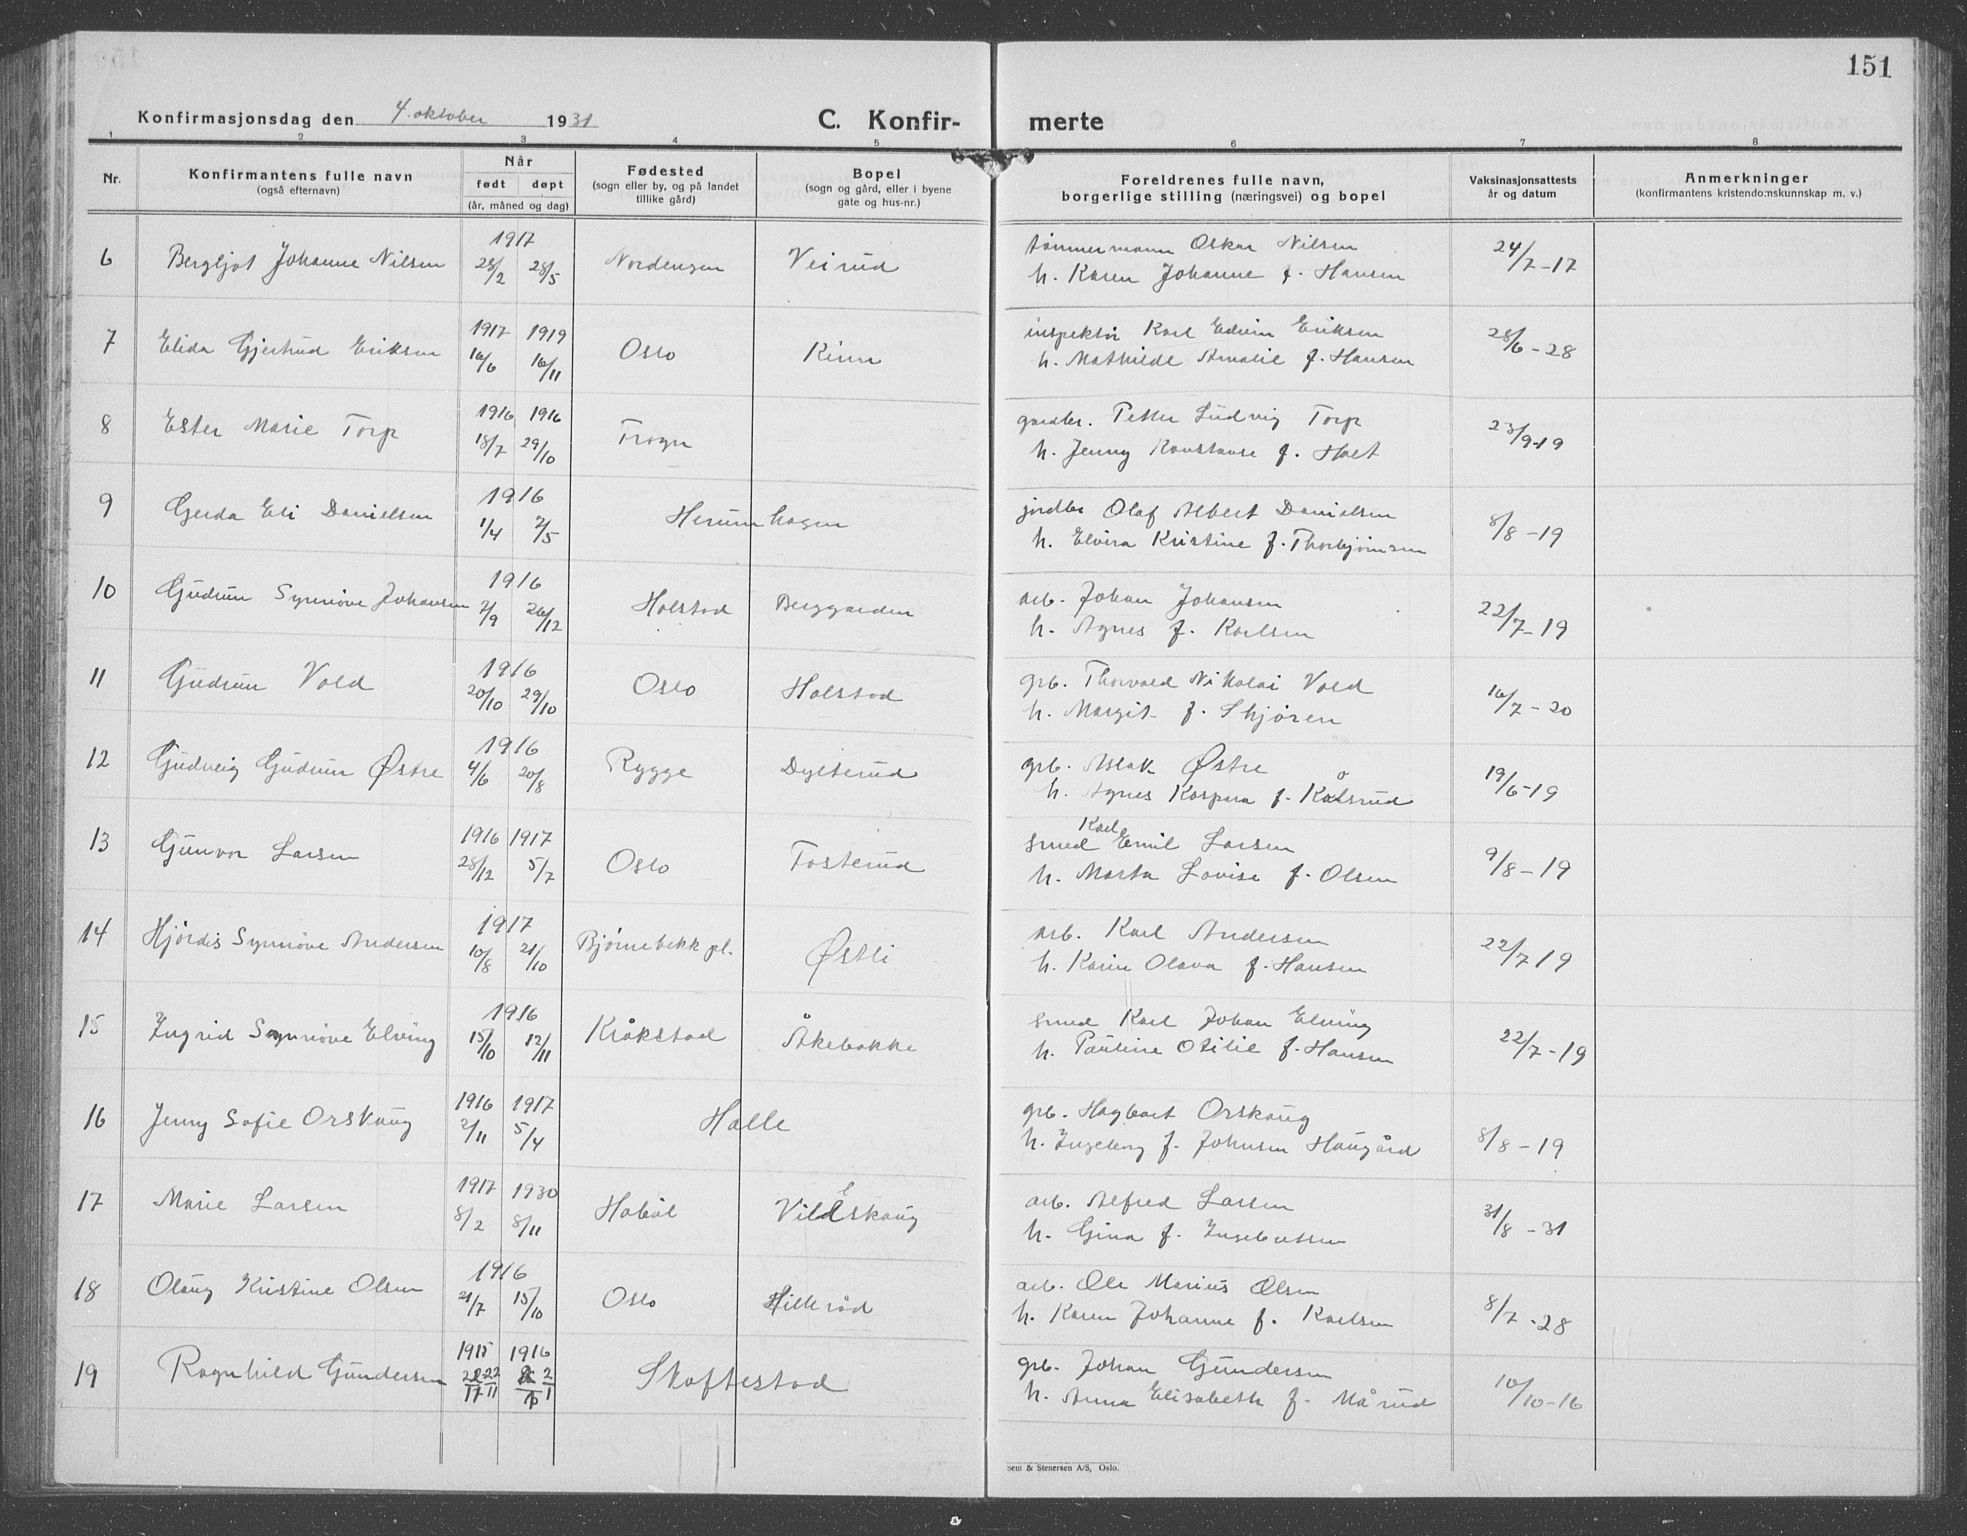 151
Konfirmasjonsdag den 4. oktober 1931 C. Konfir- merte
1 2 3 4 5 6 7 8
Nr. Konfirmantens fulle navn (også efternavn) Når født døpt (år, måned og dag) Fødested (sogn eller by, og på landet tillike gård) Bopel (sogn og gård, eller i byene gate og hus-nr.) Foreldrenes fulle navn, borgerlige stilling (næringsvei) og bopel Vaksinasjonsattests år og datum Anmerkninger (konfirmantens kristendomskunnskap m. v.)
6 Bergljot Johanne Nilsen 1917 28/2 28/5 Nordengen Veirud tømmermann Oskar Nilsen 24/7-17
h. Karen Johanne f. Hansen
7 Elida Gjertrud Eriksen 1917 16/6 1919 16/11 Oslo Kinn inspektør Karl Edvin Eriksen 28/6-28
h. Mathilde Amalie f. Hansen
8 Ester Marie Torp 1916 18/7 1916 29/10 Frogn gardbr. Petter Ludvig Torp 23/9-19
h. Jenny Konstanse f. Holt
9 Gerda Eli Danielsen 1916 1/4 7/5 Herumhagen jordbr Olaf Albert Danielsen 8/8-19
h. Elvira Kristine f. Thorbjørnsen
10 Gudrun Synnøve Johansen 1916 7/9 26/12 Holstad Berggarden arb. Johan Johansen 22/7-19
h. Agnes f. Karlsen
11 Gudrun Vold 1916 20/10 29/10 Oslo Holstad grb. Thorvald Nikolai Vold 16/7-20
h. Margit f. Skjøren
12 Gudveig Gudrun Østre 1916 4/6 20/8 Rygge Dylterud grb. Aslak Østre 19/6-19
h. Agnes Kaspara f. Kålsrud
13 Gunvor Larsen 1916 28/12 1917 5/7 Oslo Fosterud smed Karl Emil Larsen 9/8-19
h. Marta Lovise f. Olsen
14 Hjørdis Synnøve Andersen 1917 10/8 21/10 Bjørnebekk pl. Østli arb. Karl Andersen 22/7 19
h. Karin Olava f. Hansen
15 Ingrid Synnøve Elving 1916 15/10 12/11 Kråkstad Åkebakke smed Karl Johan Elving 22/7-19
h. Pauline Otilie f. Hansen
16 Jenny Sofie Orskaug 1916 2/11 1917 5/4 Holle grb. Hagbart Orskaug 8/8-19
h. Ingeborg f. Johnsen Haugård
17 Marie Larsen 1917 8/2 1930 8/11 Hobøl Villskaug arb. Alfred Larsen 31/8-31
h. Gina f. Ingebretsen
18 Olaug Kristine Olsen 1916 21/7 15/10 Oslo Hillerød arb. Ole Marius Olsen 8/7-28
h. Karen Johanne f. Karlsen
19 Ragnhild Gundersen 1915 22/11 1916 2/1 Skoftestad grb. Johan Gundersen 10/10-16
h. Anna Elisabeth f. Mårud
Sem & Stenersen A/S, Oslo.